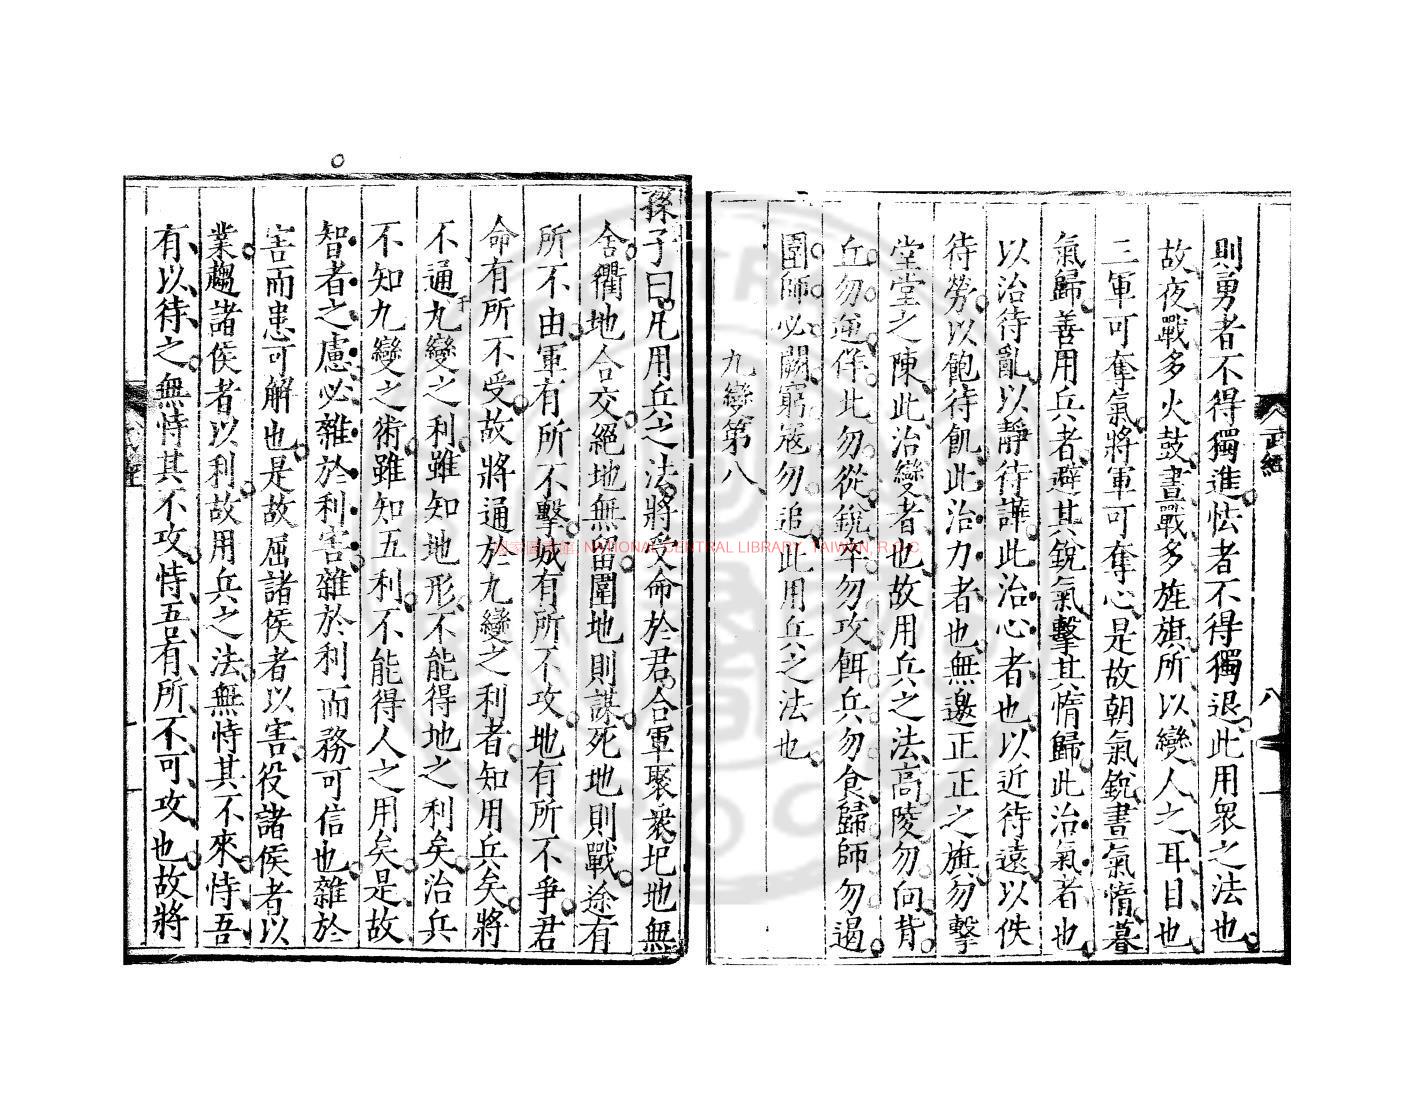 則勇者不得獨進怯者不得獨退此用衆之法也
故夜戰多火鼓晝戰多旌旗所以變人之耳目也
三軍可奪氣將軍可奪心是故朝氣銳晝氣惰暮
氣歸善用兵者避其銳氣擊其惰歸此治氣者也
以治待亂以靜待譁此治心者也以近待遠以佚
待勞以飽待飢此治力者也無邀正正之旗勿擊
堂堂之陳此治變者也故用兵之法高陵勿向背
丘勿逆佯北勿從銳卒勿攻餌兵勿食歸師勿遏
圍師必闕窮寇勿追此用兵之法也
九變第八
孫子曰凡用兵之法將受命於君合軍聚衆圮地無
舍衢地合交絕地無留圍地則謀死地則戰途有
所不由軍有所不擊城有所不攻地有所不爭君
命有所不受故將通於九變之利者知用兵矣將
不通九變之利雖知地形不能得地之利矣治兵
不知九變之術雖知五利不能得人之用矣是故
智者之慮必雜於利害雜於利而務可信也雜於
害而患可解也是故屈諸侯者以害役諸侯者以
業趨諸侯者以利故用兵之法無恃其不來恃吾
有以待之無恃其不攻恃吾有所不可攻也故將
武經
八
國家圖書館 NATIONAL CENTRAL LIBRARY, TAIWAN, R.O.C.